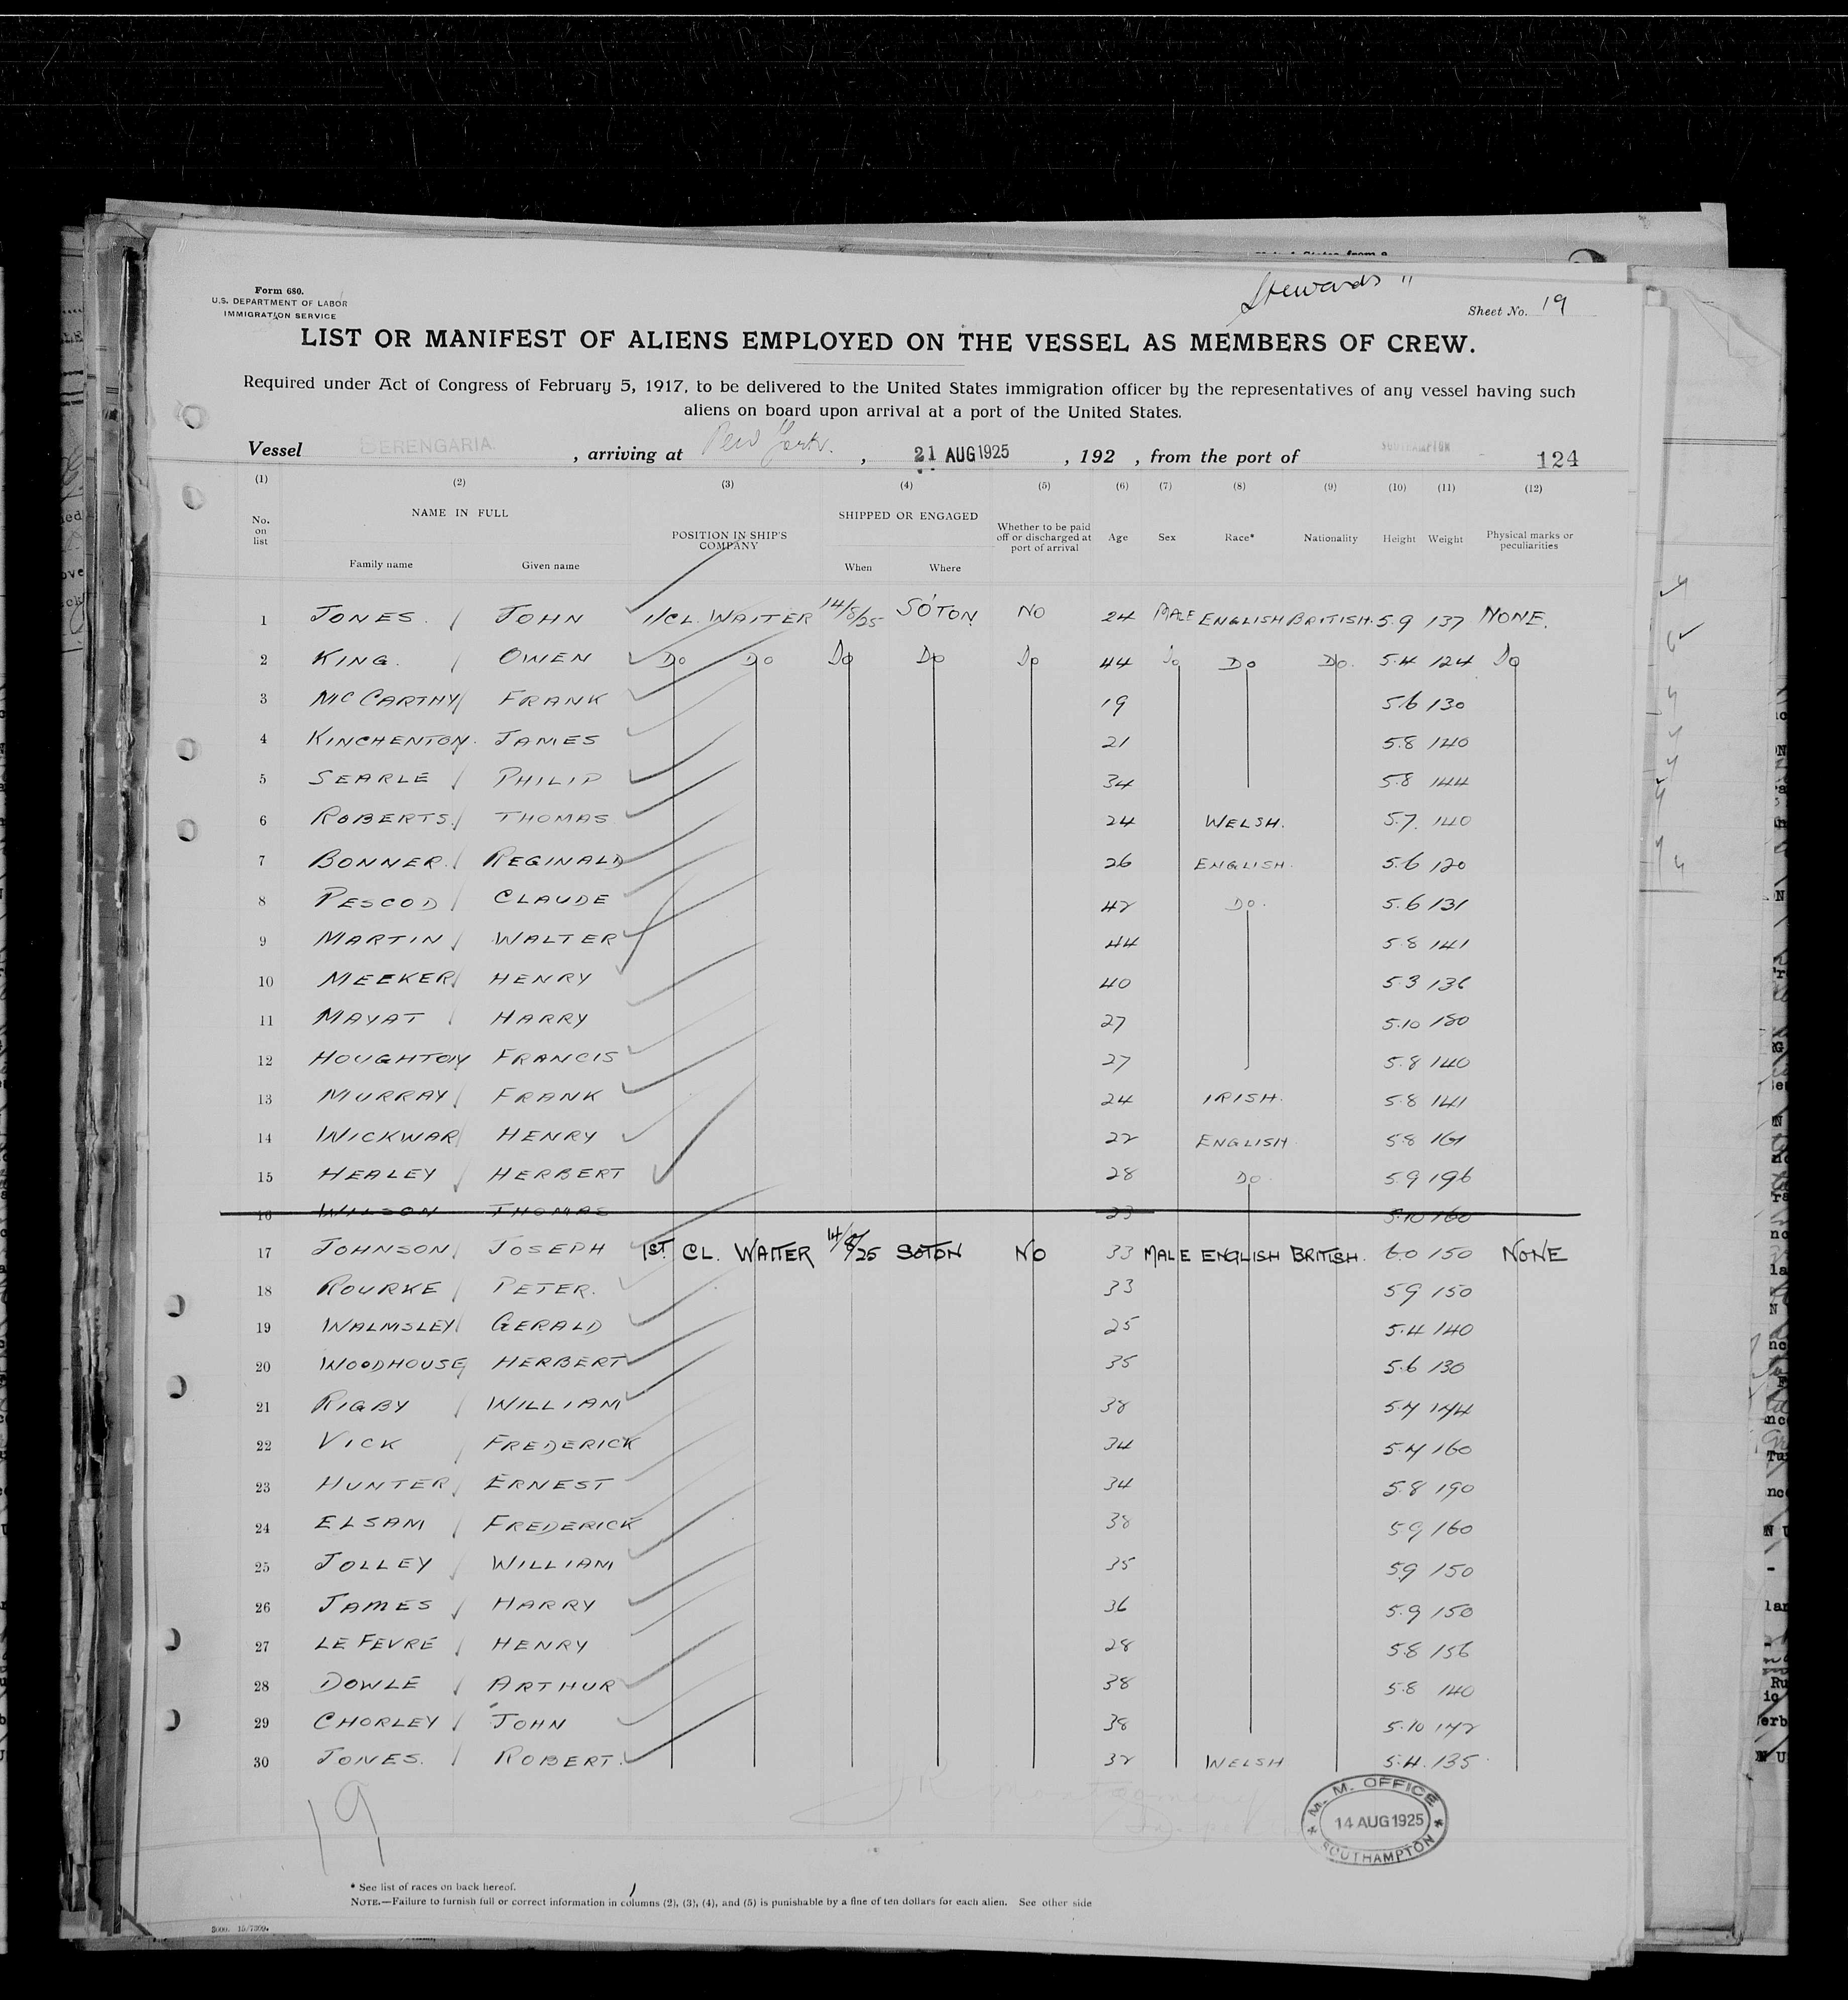 Stewards "
Form 680.
U.S. DEPARTMENT OF LABOR
IMMIGRATION SERVICE
Sheet No. 19
LIST OR MANIFEST OF ALIENS EMPLOYED ON THE VESSEL AS MEMBERS OF CREW.
Required under Act of Congress of February 5, 1917, to be delivered to the United States immigration officer by the representatives of any vessel having such
aliens on board upon arrival at a port of the United States.
Vessel BERENGARIA , arriving at New York. , 21 AUG 1925 , 192 , from the port of SOUTHAMPTON 124
(1) (2) (3) (4) (5) (6) (7) (8) (9) (10) (11) (12)
No. on list NAME IN FULL Family name Given name POSITION IN SHIP'S COMPANY SHIPPED OR ENGAGED When Where Whether to be paid off or discharged at port of arrival Age Sex Race* Nationality Height Weight Physical marks or peculiarities
1 JONES. JOHN 1/CL. WAITER 14/8/25 SO'TON NO 24 MALE ENGLISH BRITISH. 5.9 137 NONE.
2 KING. OWEN Do Do Do Do Do 44 Do Do Do. 5.4 124 Do
3 McCARTHY FRANK 19 5.6 130
4 KINCHENTON. JAMES 21 5.8 140
5 SEARLE PHILIP 34 5.8 144
6 ROBERTS. THOMAS 24 WELSH. 5.7. 140
7 BONNER. REGINALD 26 ENGLISH. 5.6 120
8 PESCOD CLAUDE 42 Do. 5.6 131
9 MARTIN WALTER 44 5.8 141
10 MEEKER HENRY 40 5.3 136
11 MAYAT HARRY 27 5.10 180
12 HOUGHTON FRANCIS 27 5.8 140
13 MURRAY FRANK 24 IRISH. 5.8 141
14 WICKWAR HENRY 22 ENGLISH 5.8 161
15 HEALEY HERBERT 28 Do. 5.9 196
16 WILSON THOMAS 23 5.10 160
17 JOHNSON JOSEPH 1ST. CL. WAITER 14/8/25 SOTON NO 33 MALE ENGLISH BRITISH. 6.0 150 NONE
18 ROURKE PETER. 33 5.9 150
19 WALMSLEY GERALD 25 5.4 140
20 WOODHOUSE HERBERT 35 5.6 130
21 RIGBY WILLIAM 38 5.7 144
22 VICK FREDERICK 34 5.7 160
23 HUNTER ERNEST 34 5.8 190
24 ELSAM FREDERICK 38 5.9 160
25 JOLLEY WILLIAM 35 5.9 150
26 JAMES HARRY 36 5.9 150
27 LE FEVRE HENRY 28 5.8 156
28 DOWLE ARTHUR 38 5.8 140
29 CHORLEY JOHN 38 5.10 142
30 JONES. ROBERT. 32 WELSH 5.4. 135
19
M. M. OFFICE
14 AUG 1925
SOUTHAMPTON
* See list of races on back hereof.
NOTE.—Failure to furnish full or correct information in columns (2), (3), (4), and (5) is punishable by a fine of ten dollars for each alien. See other side